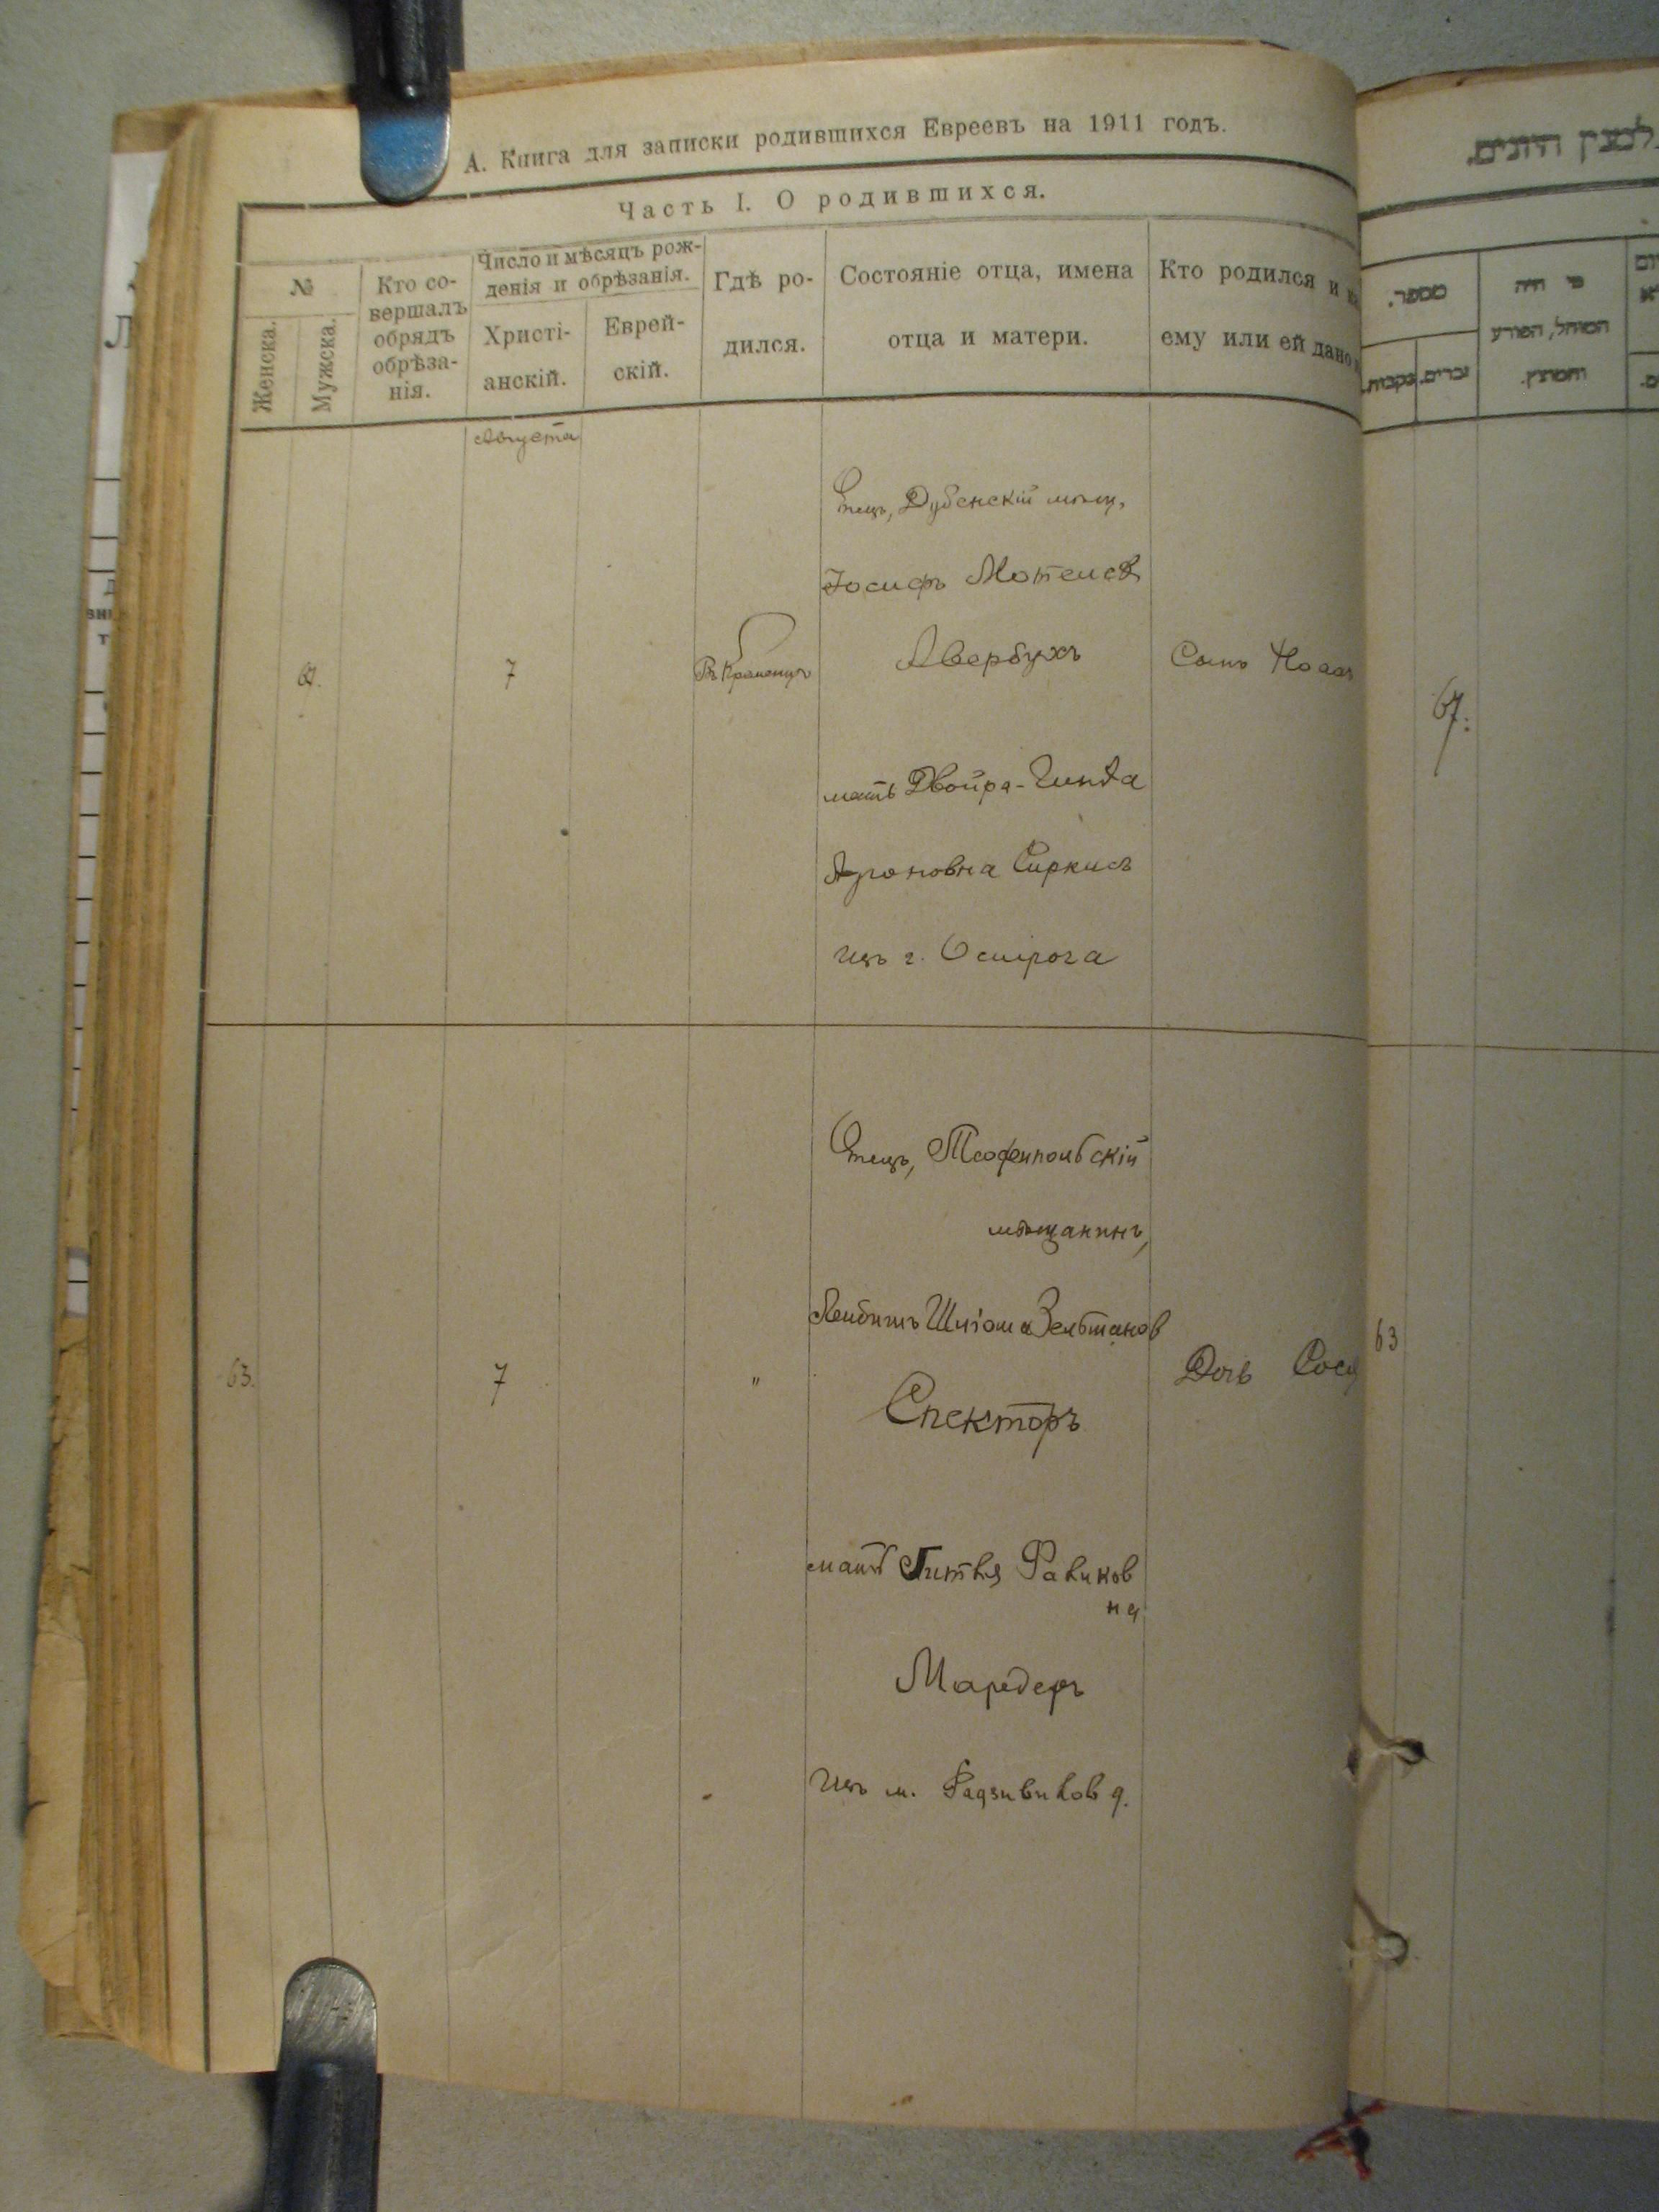 А. Книга для записки родившихся Евреевъ на 1911 годъ.
Часть I. О родившихся.
№
Женска.
Мужска.
Кто со-
вершалъ
обрядъ
обрѣза-
нія.
Число и мѣсяцъ рож-
денія и обрѣзанія.
Христі-
анскій.
Еврей-
скій.
Гдѣ ро-
дился.
Состояніе отца, имена
отца и матери.
Кто родился и
ему или ей дано
Августа
67.
7
Въ Кременцѣ
Отецъ, Дубенскій мѣщ.
Іосифъ Мотелев
Авербухъ
мать Двойра-Гинда
Ароновна Сиркисъ
изъ г. Острога
Сынъ Ноахъ
63.
7
"
Отецъ, Теофипольскій
мѣщанинъ,
Лейбишъ Шліома Зельманов
Спекторъ
мать Гитля Рафиков
на
Мардеръ
изъ м. Радзивилова.
Дочь Сося
מספר.
נקבות.
זכרים.
מי היה
המוהל, הפורע
והמוצץ.
67:
63